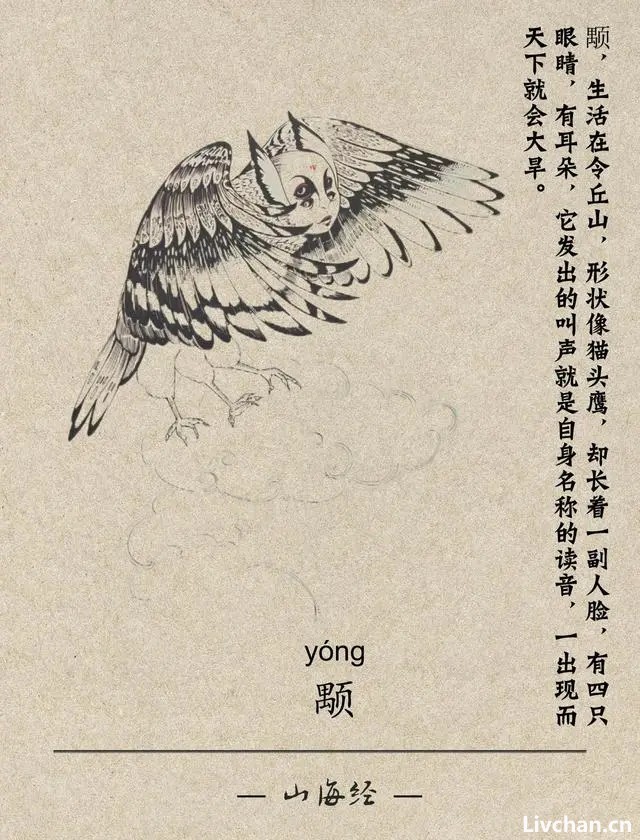 颙，生活在令丘山，形状像猫头鹰，却长着一副人脸，有四只
眼睛，有耳朵，它发出的叫声就是自身名称的读音，一出现而
天下就会大旱。
yóng
颙
— 山海经 —
Livchan.cn